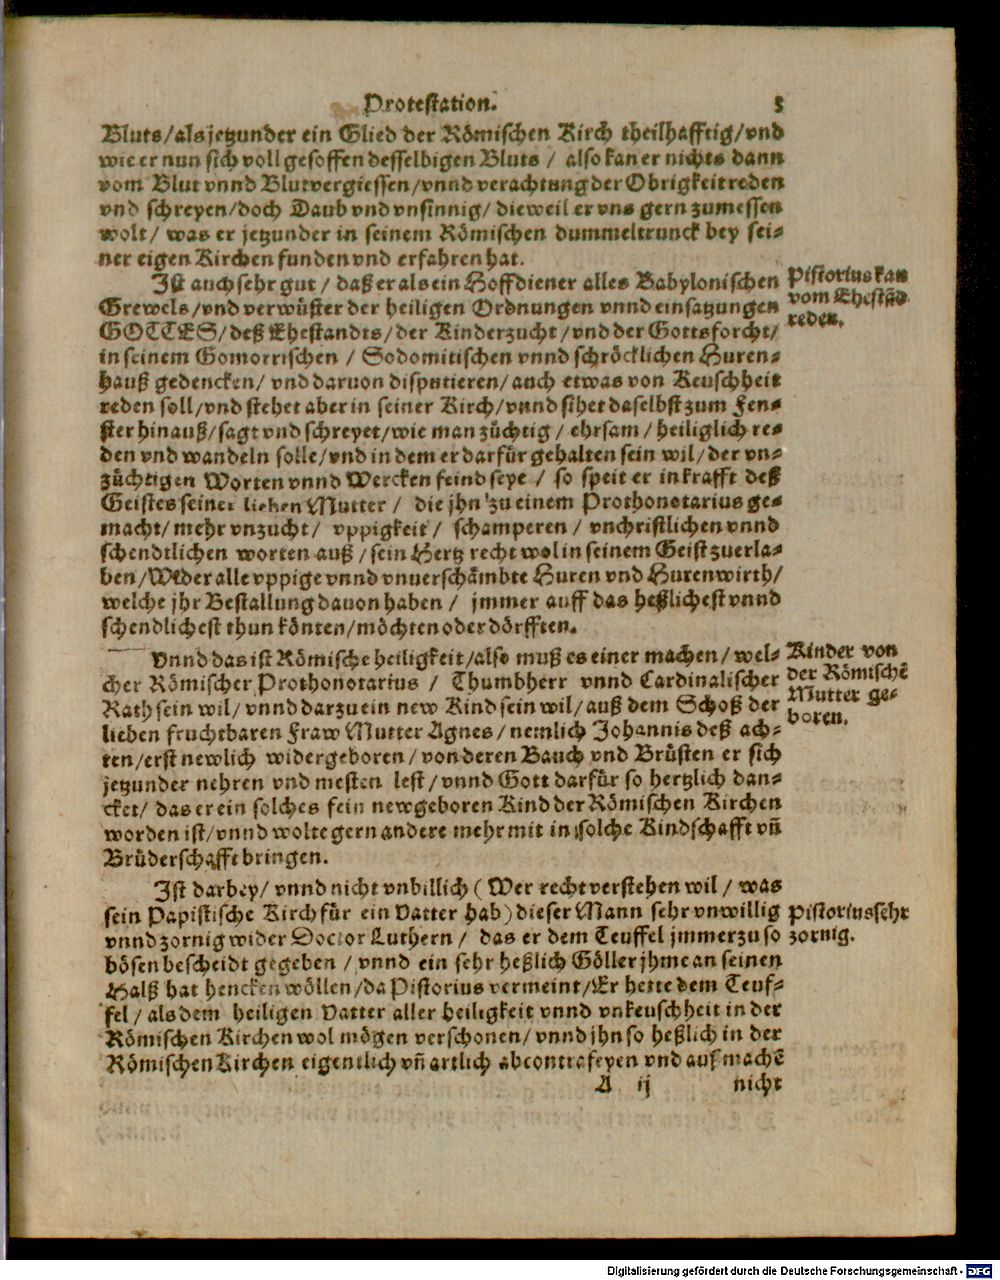 Protestation. 5
Bluts/als jetzunder ein Glied der Römischen Kirch theilhafftig/vnd
wie er nun sich voll gesoffen desselbigen Bluts / also kan er nichts dann
vom Blut vnnd Blutvergiessen/vnnd verachtung der Obrigkeit reden
vnd schreyen/doch Daub vnd vnsinnig/ dieweil er vns gern zumessen
wolt/ was er jetzunder in seinem Römischen dummeltrunck bey sei-
ner eigen Kirchen funden vnd erfahren hat.
Ist auch sehr gut / daß er als ein Hoffdiener alles Babylonischen
Grewels/vnd verwüster der heiligen Ordnungen vnnd einsatzungen
GOTTES/deß Ehestandts/der Kinderzucht/vnd der Gottsforcht/
in seinem Gomorrischen / Sodomitischen vnnd schröcklichen Huren-
hauß gedencken/ vnd daruon disputieren/auch etwas von Keuschheit
reden soll/vnd stehet aber in seiner Kirch/vnnd sihet daselbst zum Fen-
ster hinauß/sagt vnd schreyet/wie man züchtig / ehrsam / heiliglich re-
den vnd wandeln solle/vnd in dem er darfür gehalten sein wil/der vn-
züchtigen Worten vnnd Wercken feind seye / so speit er in krafft deß
Geistes seiner lieben Mutter / die jhn zu einem Prothonotarius ge-
macht/mehr vnzucht/ vppigkeit / schamperen / vnchristlichen vnnd
schendtlichen worten auß/sein Hertz recht wol in seinem Geist zuerla-
ben/Weder alle vppige vnnd vnuerschämbte Huren vnd Hurenwirth/
welche jhr Bestallung dauon haben / jmmer auff das heßlichest vnnd
schendlichest thun könten/möchten oder dörfften.
Pistorius kan
vom Ehestãd
reden.
Vnnd das ist Römische heiligkeit/also muß es einer machen/wel-
cher Römischer Prothonotarius / Thumbherr vnnd Cardinalischer
Rath sein wil/vnnd darzu ein new Kind sein wil/auß dem Schoß der
lieben fruchtbaren Fraw Mutter Agnes/nemlich Johannis deß ach-
ten/erst newlich widergeboren/von deren Bauch vnd Brüsten er sich
jetzunder nehren vnd mesten lest/vnnd Gott darfür so hertzlich dan-
cket/ das er ein solches fein newgeboren Kind der Römischen Kirchen
worden ist/vnnd wolte gern andere mehr mit in solche Kindschafft vñ
Brüderschafft bringen.
Kinder von
der Römischẽ
Mutter ge-
boren.
Ist darbey/ vnnd nicht vnbillich (Wer recht verstehen wil / was
sein Papistische Kirch für ein Vatter hab) dieser Mann sehr vnwillig
vnnd zornig wider Doctor Luthern / das er dem Teuffel jmmerzu so
bösen bescheidt gegeben / vnnd ein sehr heßlich Göller jhme an seinen
Halß hat hencken wöllen/da Pistorius vermeint/Er hette dem Teuf-
fel / als dem heiligen Vatter aller heiligkeit vnnd vnkeuschheit in der
Römischen Kirchen wol mögen verschonen/vnnd jhn so heßlich in der
Römischen Kirchen eigentlich vñ artlich abcontrafeyen vnd außmachẽ
Pistorius sehr
zornig.
A ij nicht
Digitalisierung gefördert durch die Deutsche Forschungsgemeinschaft - DFG